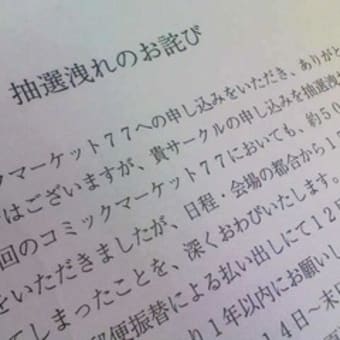 抽選洩れのお詫び
クマーケット77への申し込みをいただき、ありがと
はございますが、貴サークルの申し込みを抽選洩
回のコミックマーケット77においても、約50
をいただきましたが、日程・会場の都合から17
てしまったことを、深くおわびいたします。
郵便振替による払い出しにて12
り1年以内にお願いし
14日～末日